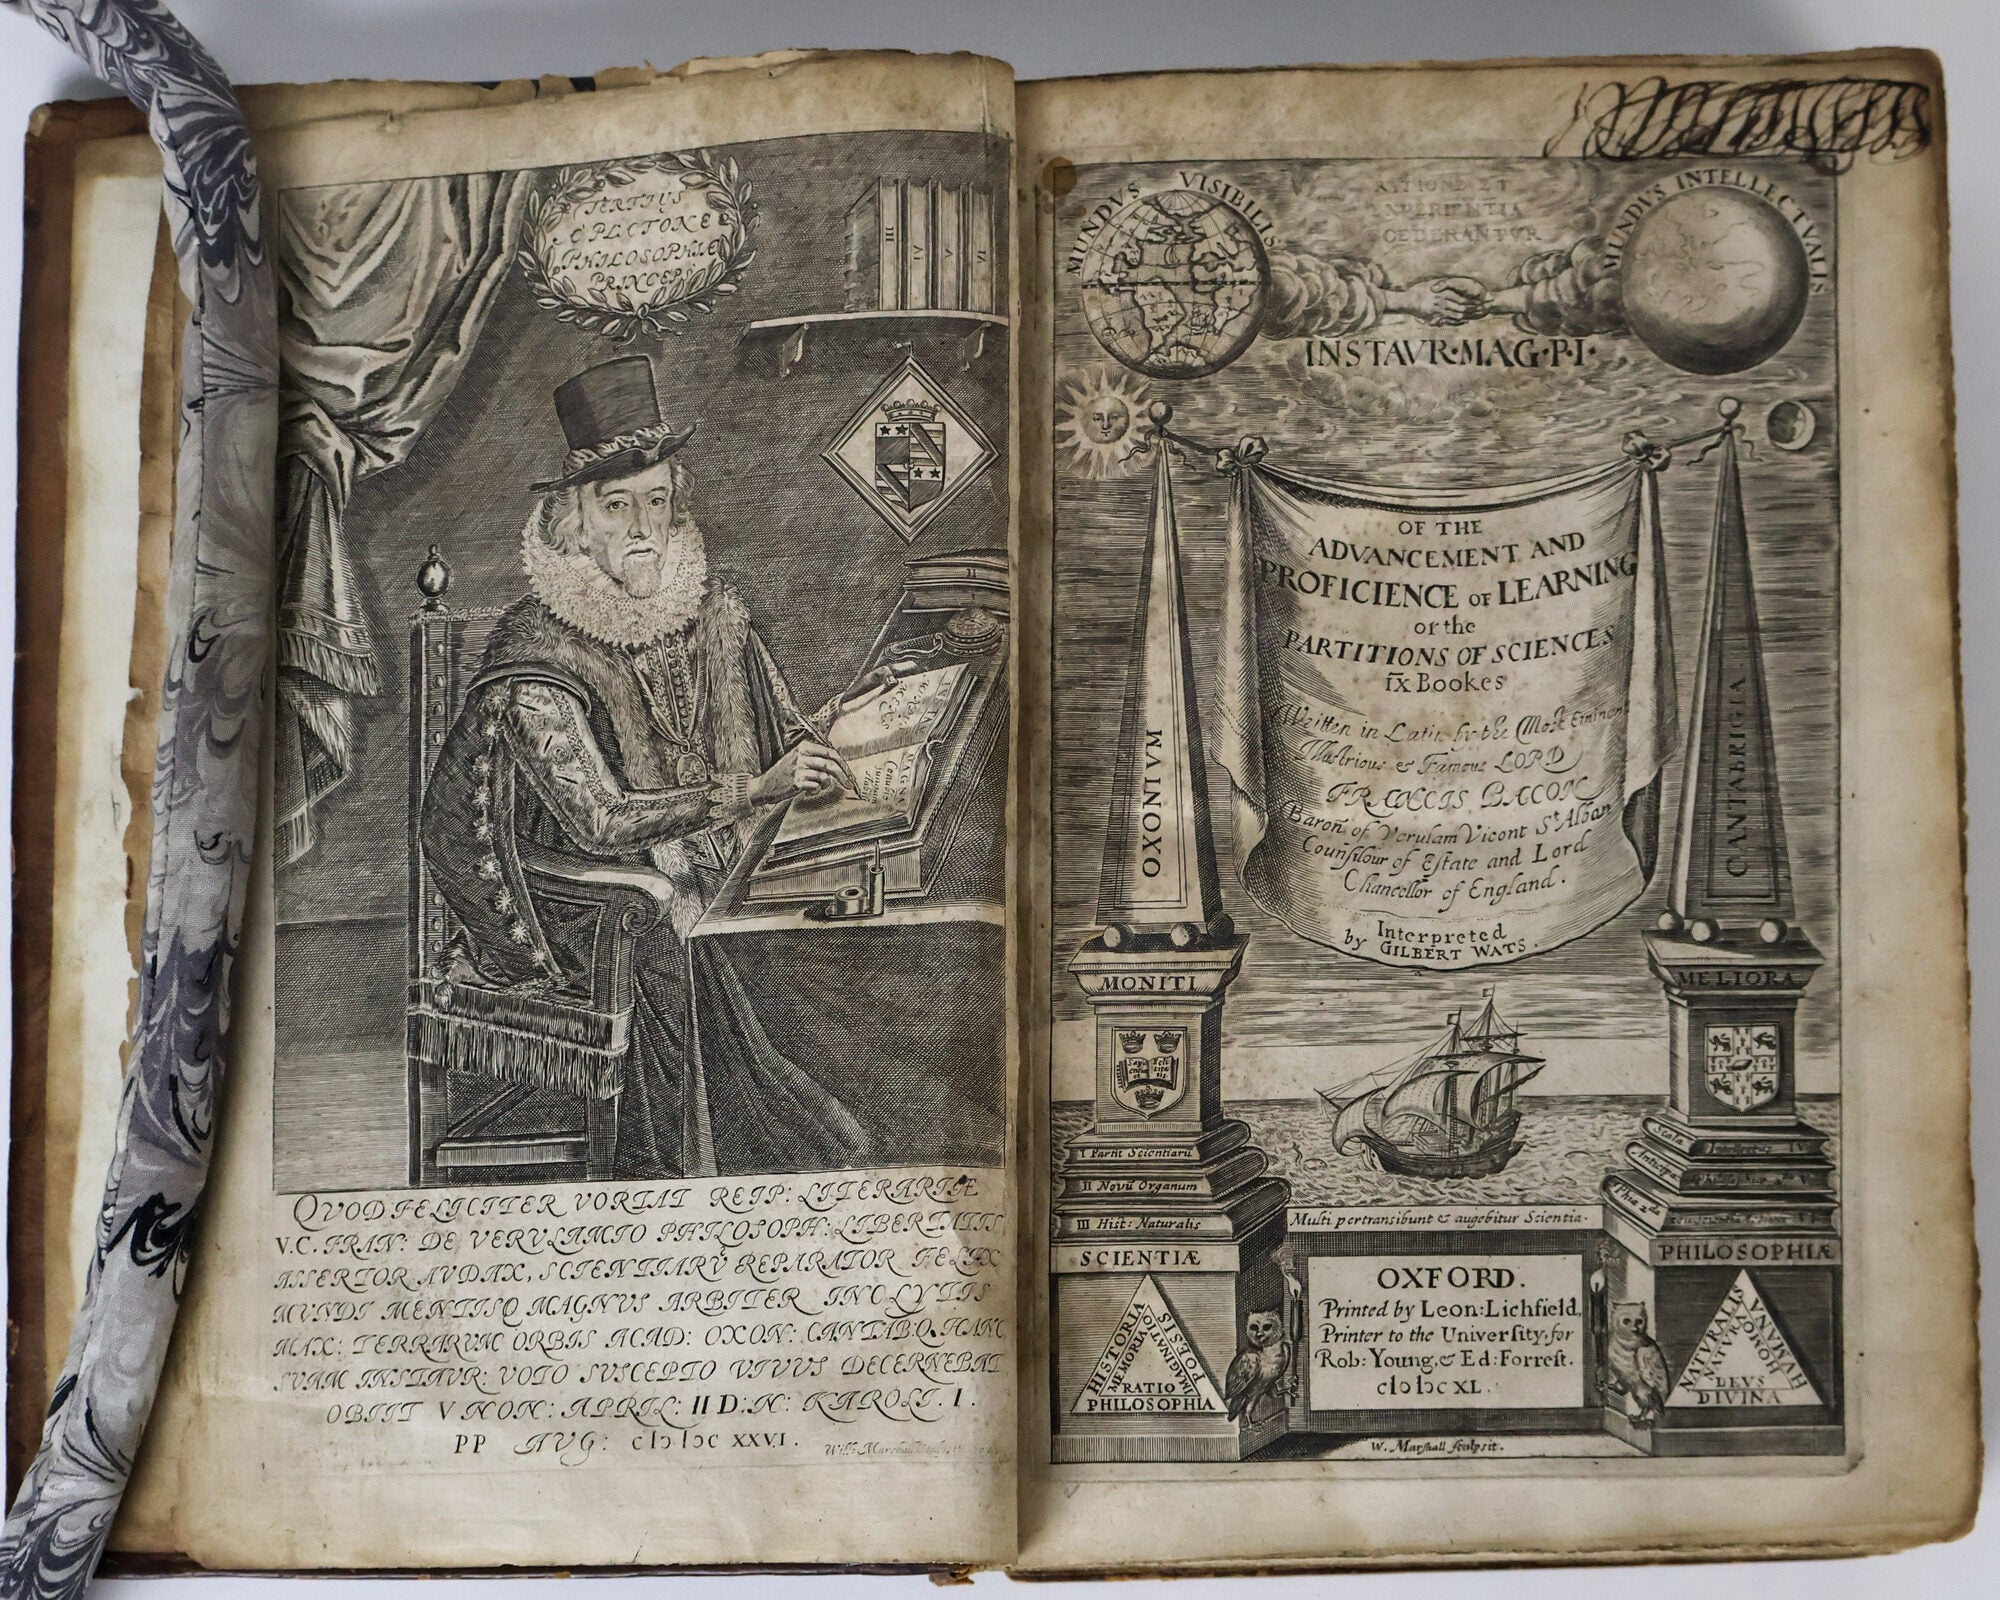 TERTIUS
A PLATONE
PHILOSOPHIÆ
PRINCEPS
III
IV
V
VI
II
QVOD FELICITER VORTAT REIP: LITERARIÆ
V.C. FRAN: DE VERULAMIO PHILOSOPH: LIBERTATIS
ASSERTOR AVDAX, SCIENTIARŪ REPARATOR FELIX
MVNDI MENTISQ MAGNVS ARBITER INCLYTIS
MAX: TERRARUM ORBIS ACAD: OXON: CANTAB:Q HANC
SVAM INSTAUR: VOTO SUSCEPTO VIVUS DECERNEBAT
OBIIT V NON: APRIL: II D:N: KAROLI. I.
PP AVG: cIↃ IↃc XXVI.
Will: Marshall
MUNDVS VISIBILIS
RATIONE ET
EXPERIENTIA
FOEDERANTVR
MVNDVS INTELLECTVALIS
INSTAVR·MAG·P·I·
OF THE
ADVANCEMENT AND
PROFICIENCE OF LEARNING
or the
PARTITIONS OF SCIENCES
IX Bookes
Written in Latin by the Most Eminent
Illustrious & Famous LORD
FRANCIS BACON
Baron of Verulam Vicont St Alban
Counsilour of Estate and Lord
Chancellor of England.
Interpreted
by GILBERT WATS.
OXONIVM
CANTABRIGIA
MONITI
MELIORA
I Partit Scientiarū
II Novū Organum
III Hist: Naturalis
Scala
IV
Anticipa
V
Phia 2da
Multi pertransibunt & augebitur Scientia.
SCIENTIÆ
PHILOSOPHIÆ
HISTORIA
MEMORIA
IMAGINATIO
POESIS
RATIO
PHILOSOPHIA
OXFORD.
Printed by Leon: Lichfield,
Printer to the University, for
Rob: Young, & Ed: Forrest.
cIↃ IↃc XL.
NATURALIS
NATURA
HOMO
HUMANA
DEVS
DIVINA
W. Marshall sculpsit.